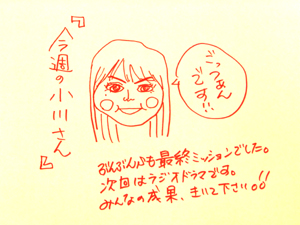 『今週の小川さん』
ごっつぁん
です!!
ぶんぶんぶも最終ミッションでした。
次回はラジオドラマです。
みんなの成果、きいて下さい!!